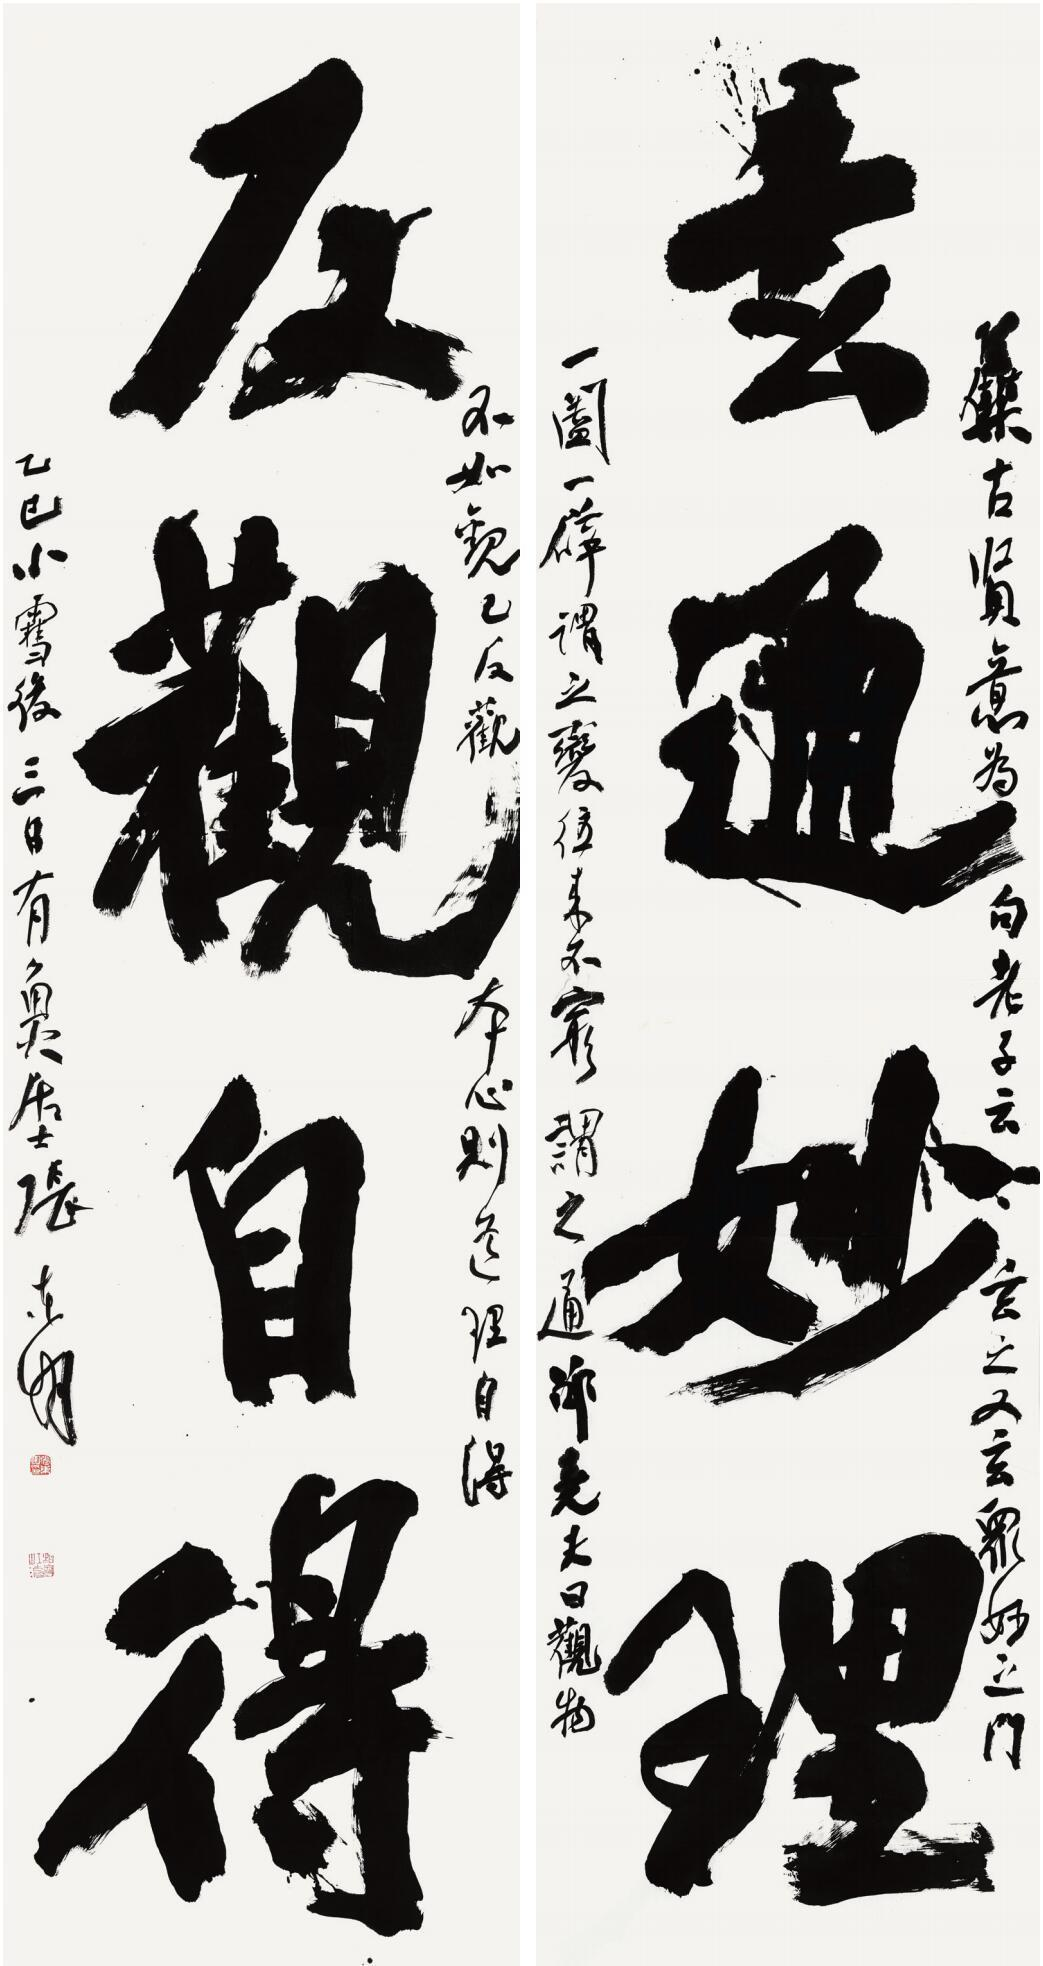 集古贤意為句老子云玄之又玄眾妙之門
玄通妙理
一闔一辟謂之變往来不窮謂之通邵堯夫曰觀物
不如观己反觀本心則道理自得
反觀自得
乙巳小雪後三日有魚居士張東明